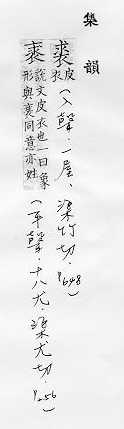 集韻
裘皮
衣(入聲.一屋,渠竹切.P648)
裘說文皮衣也一曰象
形與衰同意亦姓(平聲.十八尤.渠尤切.P256)